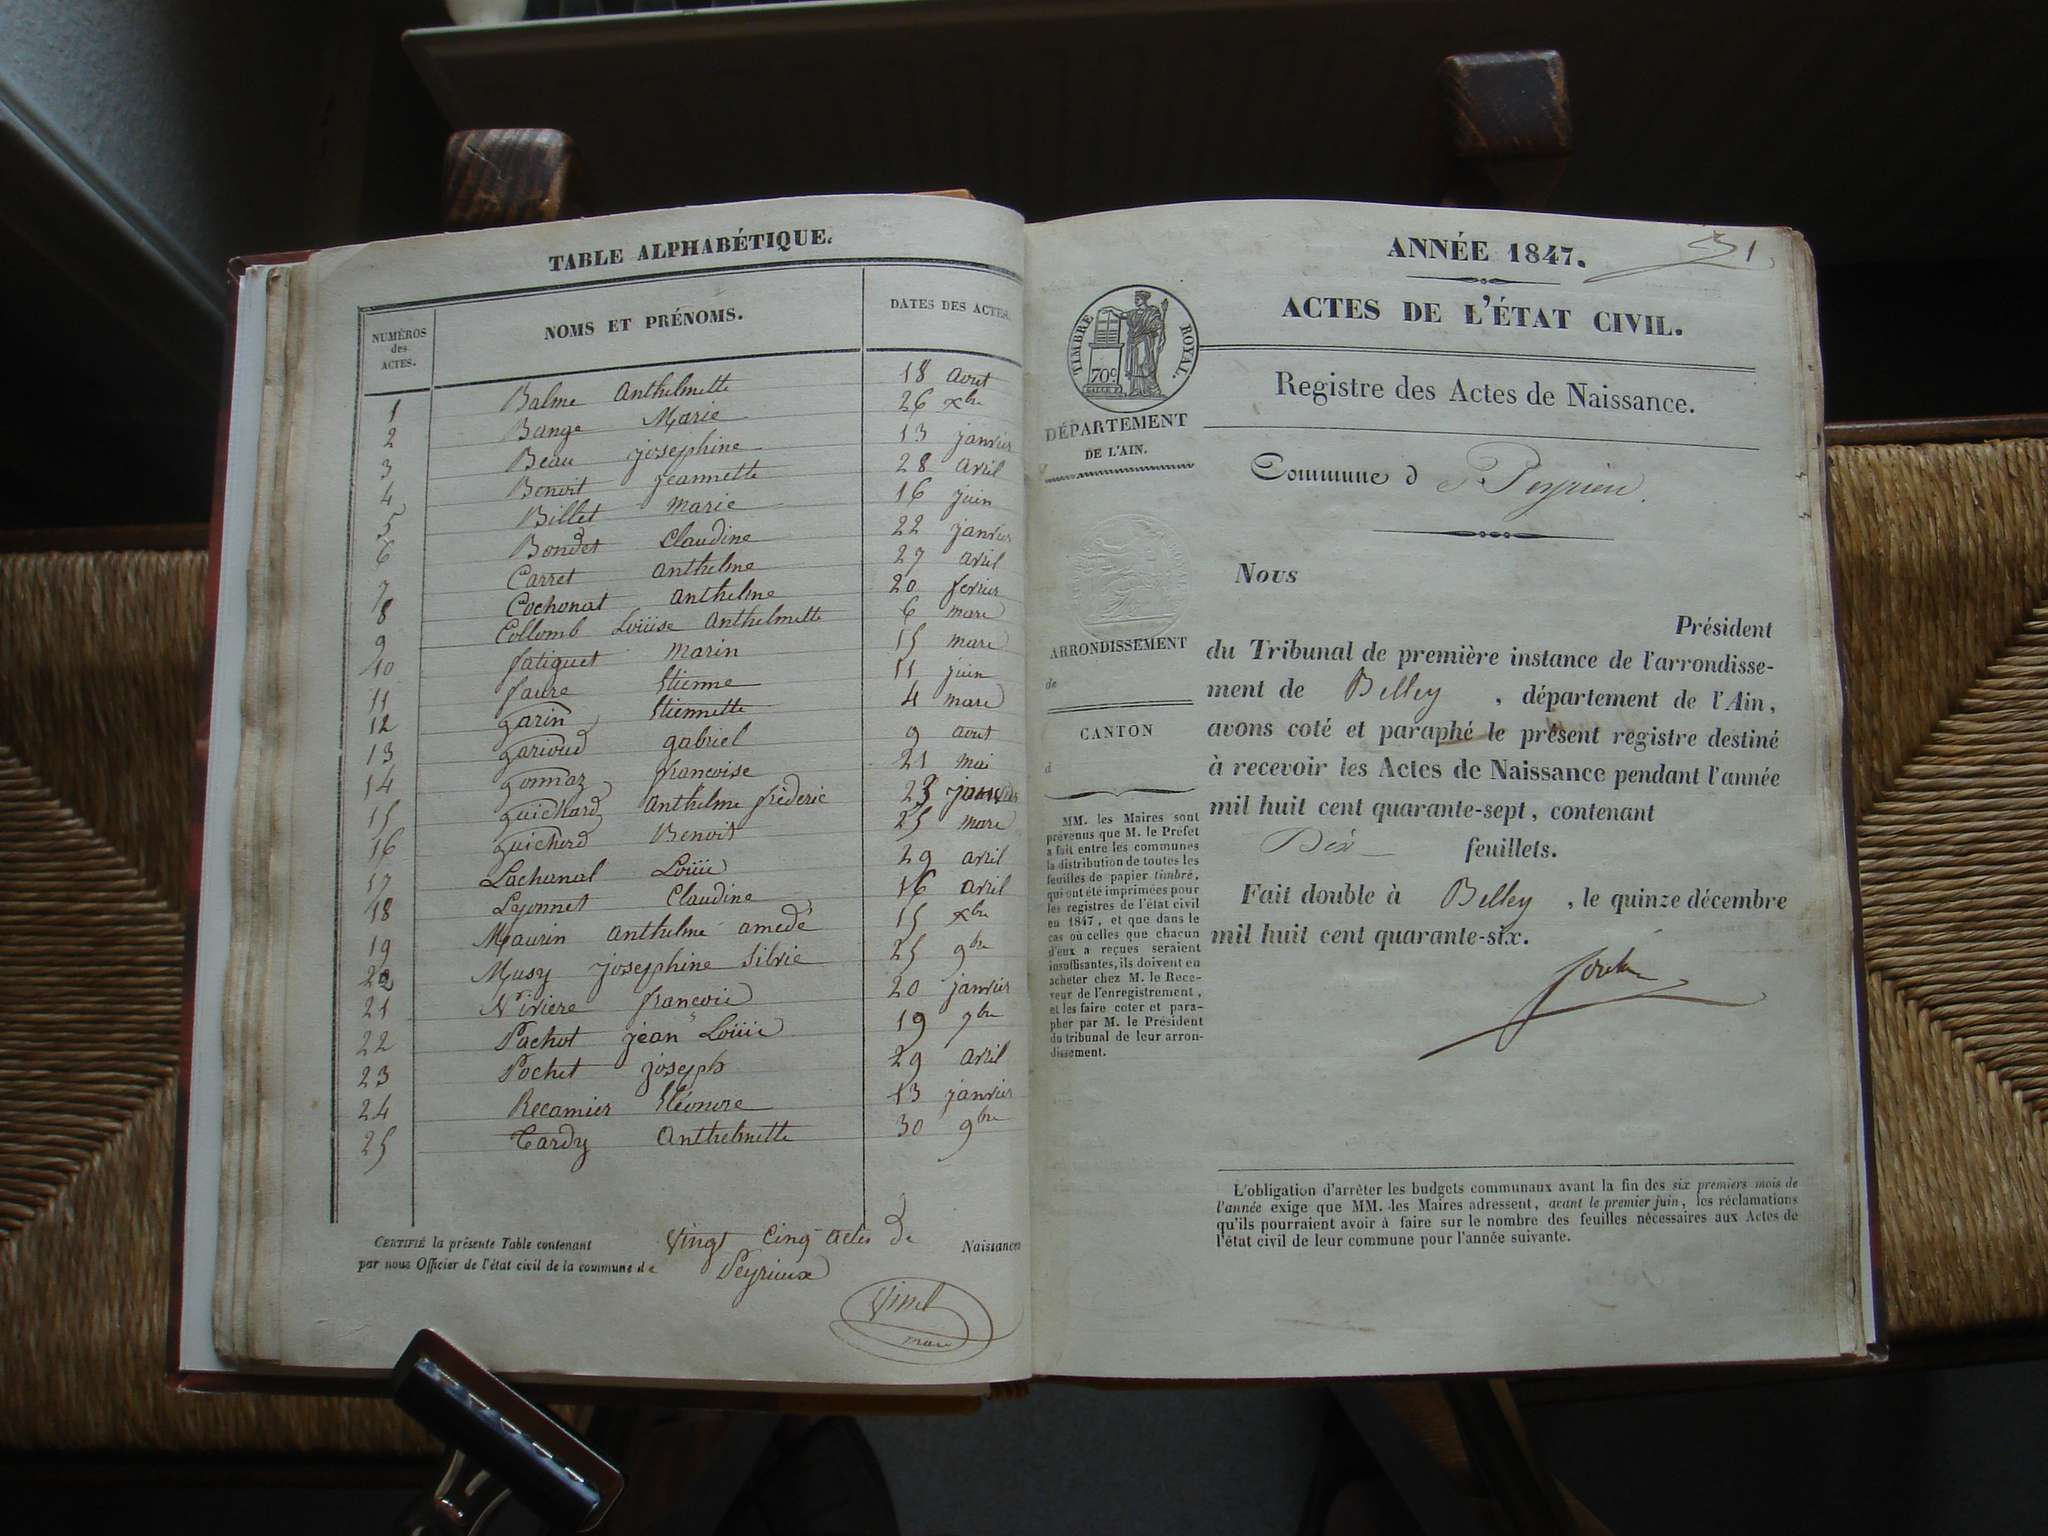 TABLE ALPHABÉTIQUE.
NUMÉROS des ACTES. NOMS ET PRÉNOMS. DATES DES ACTES.
1 Balme Anthelmette 18 Aout
2 Bange Marie 26 xbre
3 Beau josephine 13 janvier
4 Benoit jeannette 28 avril
5 Billet marie 16 juin
6 Bondet Claudine 22 janvier
7 Carret anthelme 27 avril
8 Cochonat anthelme 20 fevrier
9 Collomb Loüise Anthelmette 6 mars
10 fatiguet marin 15 mars
11 faure Etienne 11 juin
12 garin Etiennette 4 mars
13 garioud gabriel 9 aout
14 gonnaz francoise 21 mai
15 guichard anthelme fréderic 23 janvier
16 guicherd Benoit 25 mars
17 Lachanal Loüis 29 avril
18 Leonnet Claudine 16 avril
19 Maurin anthelme amedé 15 xbre
20 Musy josephine Silvie 25 9bre
21 Niviere francois 20 janvier
22 Pachot jean Loüis 19 9bre
23 Pochet joseph 29 avril
24 Recamier Eléonore 13 janvier
25 Tardy Anthelmette 30 9bre
CERTIFIÉ la présente Table contenant Vingt Cinq actes de Naissances
par nous Officier de l'état civil de la commune de Peyrieux
maire
ANNÉE 1847. 1
ACTES DE L'ÉTAT CIVIL.
TIMBRE ROYAL.
70c
Registre des Actes de Naissance.
DÉPARTEMENT
DE L'AIN.
Commune d Peyrieu.
Nous
Président
ARRONDISSEMENT
de
du Tribunal de première instance de l'arrondisse-
ment de Belley , département de l'Ain,
CANTON
d
avons coté et paraphé le présent registre destiné
à recevoir les Actes de Naissance pendant l'année
mil huit cent quarante-sept, contenant
Dix feuillets.
Fait double à Belley , le quinze décembre
mil huit cent quarante-six.
MM. les Maires sont
prévenus que M. le Préfet
a fait entre les communes
la distribution de toutes les
feuilles de papier timbré,
qui ont été imprimées pour
les registres de l'état civil
en 1847, et que dans le
cas où celles que chacun
d'eux a reçues seraient
insuffisantes, ils doivent en
acheter chez M. le Rece-
veur de l'enregistrement,
et les faire coter et para-
pher par M. le Président
du tribunal de leur arron-
dissement.
L'obligation d'arrêter les budgets communaux avant la fin des six premiers mois de
l'année exige que MM. les Maires adressent, avant le premier juin, les réclamations
qu'ils pourraient avoir à faire sur le nombre des feuilles nécessaires aux Actes de
l'état civil de leur commune pour l'année suivante.